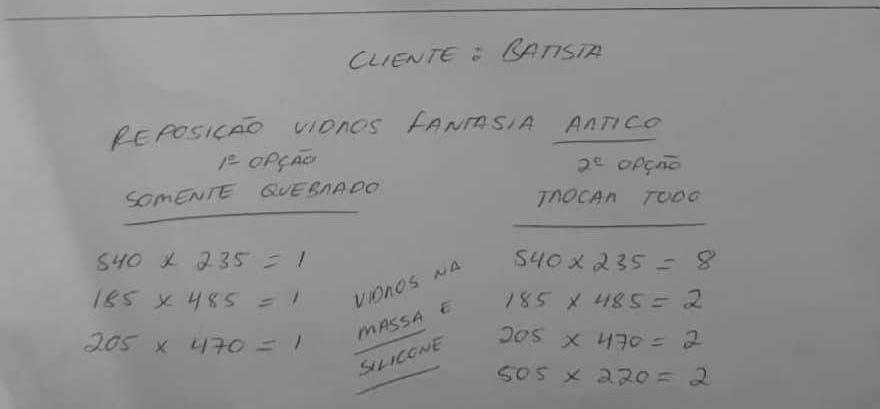 CLIENTE : BATISTA
REPOSIÇÃO VIDROS FANTASIA ARTICO
1ª OPÇÃO
SOMENTE QUEBRADO
540 x 235 = 1
185 x 485 = 1
205 x 470 = 1
VIDROS NA
MASSA E
SILICONE
2ª OPÇÃO
TROCAR TUDO
540 x 235 = 8
185 x 485 = 2
205 x 470 = 2
505 x 220 = 2